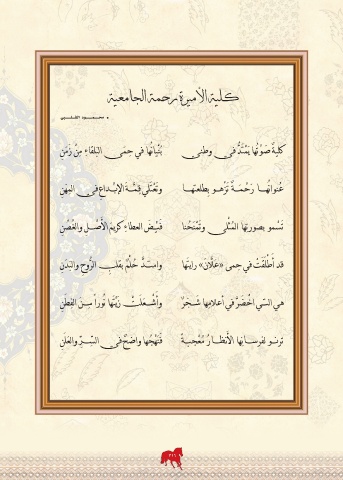 كلية الأميرة رحمة الجامعية
• محمود الشلبي
كليةٌ صَوْتُها يَمْتَدُّ في وطني بُنْيانُها في حِمَى البلقاءِ مِنْ زَمَنِ
عُنوانُهــا رَحْمَــةٌ تَزْهــو بطلعتهــا وتَعْتَلي قِمَّــةَ الإبْــداعِ في المِهَنِ
تَسْمو بصورتِها المُثْلَى وتَمْنَحُنا فَيْضَ العطاءِ كريمَ الأَصْلِ والغُصُنِ
قد أُطْلِقَتْ في حِمى «علّان» رايتُها وامتدَّ حُلُمٌ بقلبِ الرُّوحِ والبَدَنِ
هي التي اخْضَرَّ في أعلامِها شَجَرٌ وأَشْعَلَتْ زَيْتَها نُوراً مِنَ الفِطَنِ
ترنــو لفرســانِها الأَنظــارُ مُعْجَبَــةً فَنَهْجُها واضحٌ في السِّرِّ والعَلَنِ